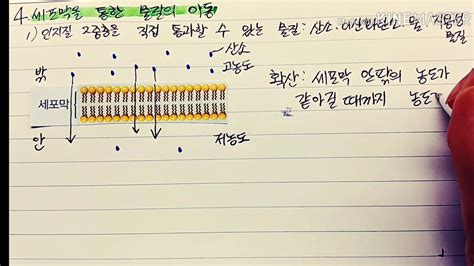 4. 세포막을 통한 물질의 이동
1) 인지질 2중층을 직접 통과할 수 있는 물질 : 산소, 이산화탄소, 물, 지용성 물질
산소
밖
고농도
세포막
안
저농도
확산 : 세포막 안팎의 농도가
같아질 때까지 농도가